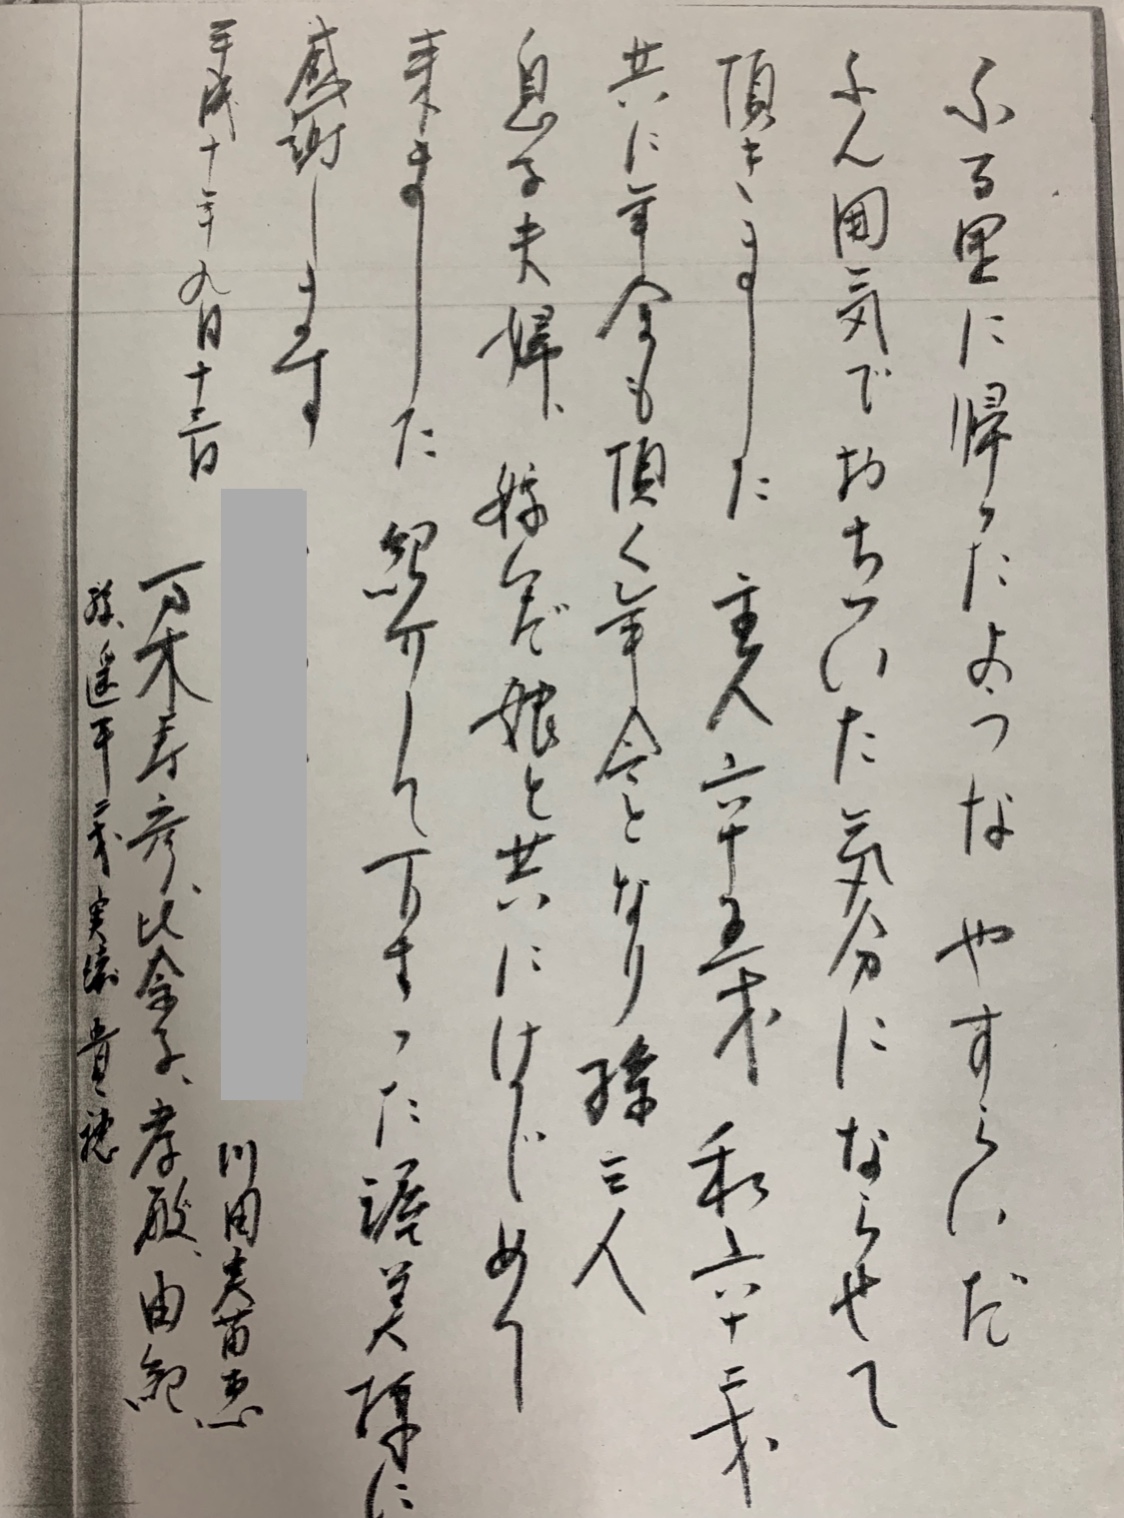 ふる里に帰ったような やすらいだ
ふん囲気でおちついた気分にならせて
頂きました 主人六十五才 私六十三才
共に年金も頂く年令となり 孫三人
息子夫婦、嫁いだ娘と共にはじめて
来ました 紹介して下さった 様に
感謝します
平成十年九月十三日
川田
万木寿彦、比奈子、孝敏、由紀、
孫 遥平 二才 実 貴